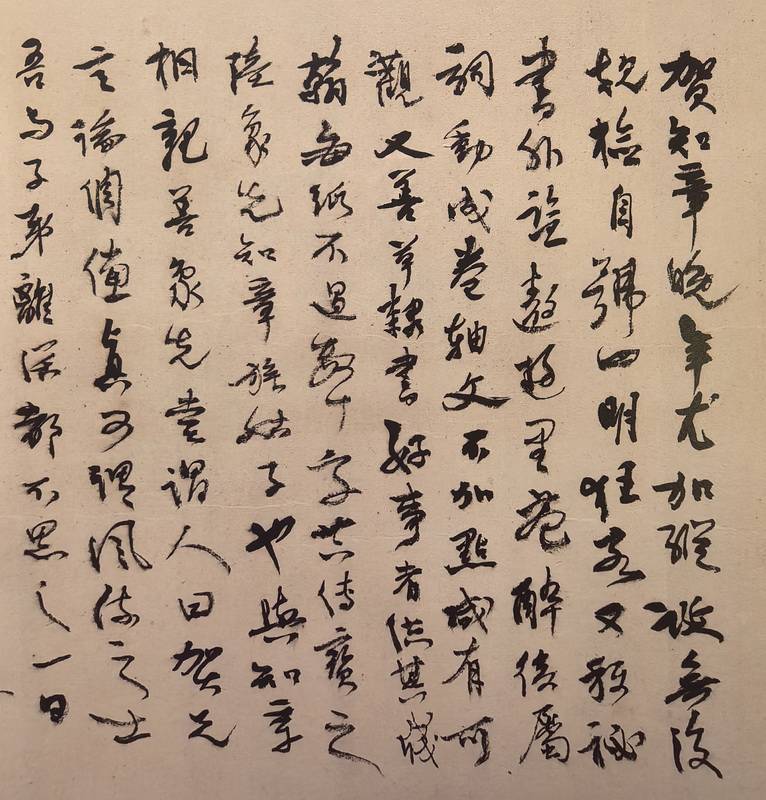 賀知章晚年尤加縱誕無復
規檢自號四明狂客又稱祕
書外監遨遊里巷醉後屬
詞動成卷軸文不加點咸有可
觀又善草隸書好事者供其牋
翰每紙不過數十字共傳寶之
陸象先知章族姑子也與知章
相親善象先嘗謂人曰賀兄
言論倜儻真可謂風流之士
吾與子弟離濶都不思之一日